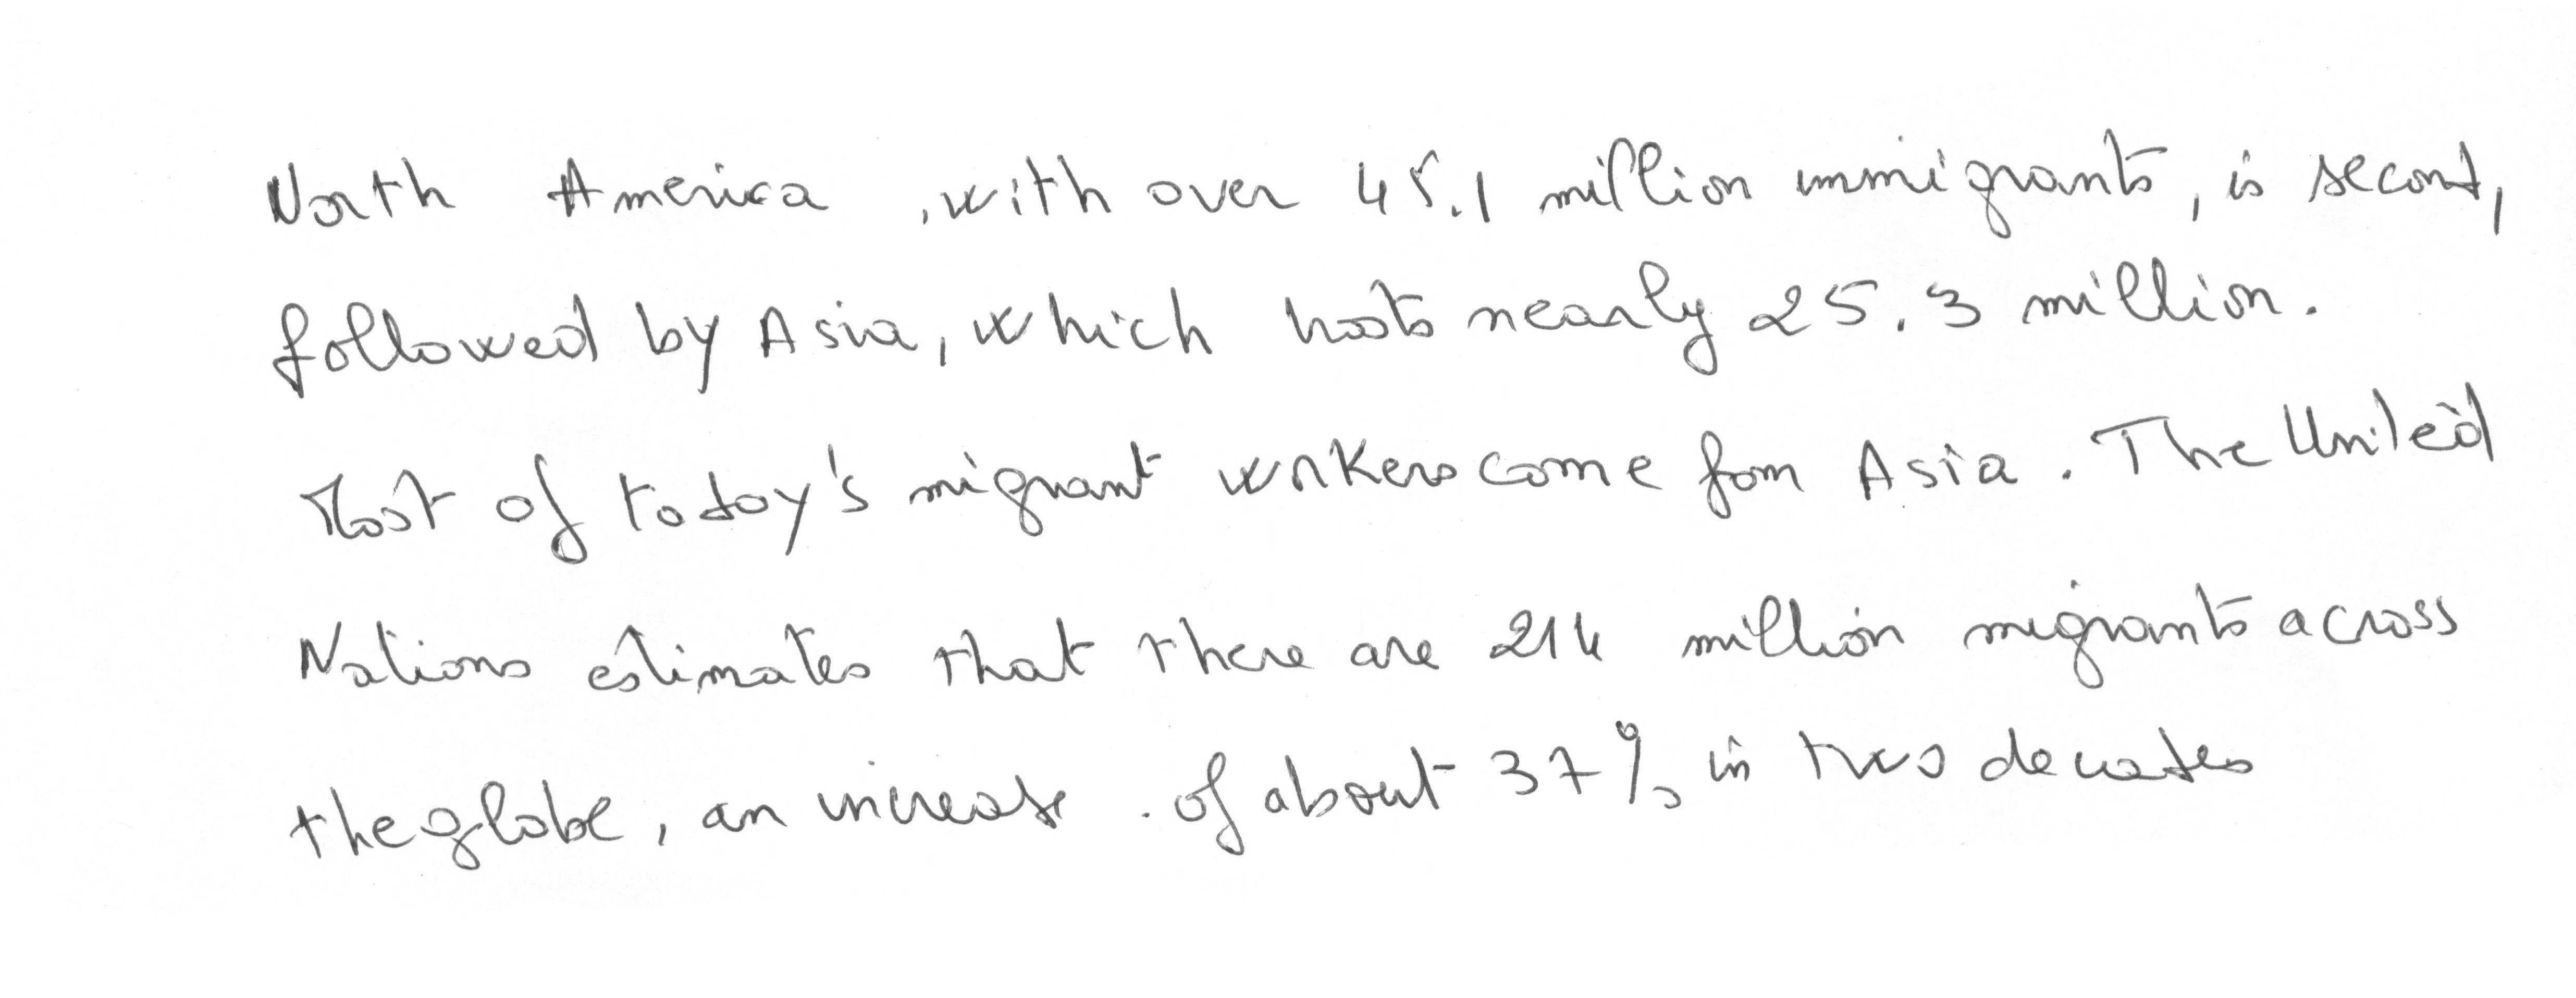 North America , with over 45.1 million immigrants, is second,
followed by Asia, which hosts nearly 25.3 million.
Most of today's migrant workers come fom Asia. The United
Nations estimates that there are 214 million migrants across
the globe, an increase of about 37% in two decades